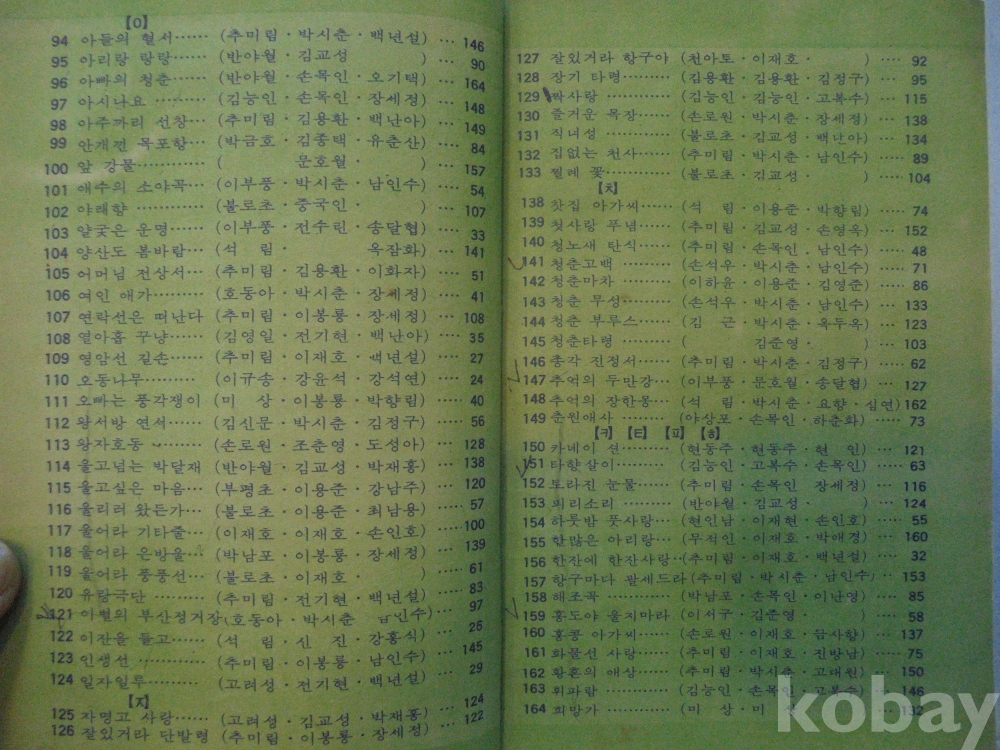 【ㅇ】
94 아들의 혈서…… (추미림・박시춘・백년설) … 146
95 아리랑 랑랑…… (반야월・김교성 ) … 90
96 아빠의 청춘…… (반야월・손목인・오기택) … 164
97 아시나요 ……… (김능인・손목인・장세정) … 148
98 아주까리 선창… (추미림・김용환・백난아) … 149
99 안개낀 목포항… (박금호・김종택・유춘산) … 84
100 앞 강물………… ( 문호월・ ) … 157
101 애수의 소야곡… (이부풍・박시춘・남인수) … 54
102 야래향 ………… (불로초・중국인・ ) … 107
103 얄궂은 운명…… (이부풍・전수린・송달협) … 33
104 양산도 봄바람… (석 림・ 옥잠화) … 141
105 어머님 전상서… (추미림・김용환・이화자) … 51
106 여인 애가……… (호동아・박시춘・장세정) … 41
107 연락선은 떠난다 (추미림・이봉룡・장세정) … 108
108 열아홉 꾸냥…… (김영일・전기현・백난아) … 35
109 영암선 길손…… (추미림・이재호・백년설) … 27
110 오동나무……… (이규송・강윤석・강석연) … 24
111 오빠는 풍각쟁이 (미 상・이봉룡・박향림) … 40
112 왕서방 연서…… (김신문・박시춘・김정구) … 56
113 왕자호동 ……… (손로원・조춘영・도성아) … 128
114 울고넘는 박달재 (반야월・김교성・박재홍) … 138
115 울고싶은 마음… (부평초・이용준・강남주) … 120
116 울리러 왔든가… (불로초・이용준・최남용) … 57
117 울어라 기타줄… (이재호・이재호・손인호) … 100
118 울어라 은방울… (박남포・이봉룡・장세정) … 139
119 울어라 풍풍선… (불로초・이재호・ ) … 61
120 유랑극단 ……… (추미림・전기현・백년설) … 83
121 이별의 부산정거장(호동아・박시춘 남인수) … 97
122 이잔을 들고…… (석 림・신 진・강홍식) … 26
123 인생선 ………… (추미림・이봉룡・남인수) … 145
124 일자일루 ……… (고려성・전기현・백년설) … 29
【ㅈ】
125 자명고 사랑…… (고려성・김교성・박재홍) … 124
126 잘있거라 단발령 (추미림・이봉룡・장세정) … 122
127 잘있거라 항구야 (천아토・이재호・ ) … 92
128 장기 타령……… (김용환・김용환・김정구) … 95
129 짝사랑 ………… (김능인・김능인・고복수) … 115
130 즐거운 목장…… (손로원・박시춘・장세정) … 138
131 직녀성 ………… (불로초・김교성・백난아) … 134
132 집없는 천사…… (추미림・박시춘・남인수) … 89
133 찔레 꽃………… (불로초・김교성・ ) … 104
【치】
138 찻집 아가씨…… (석 림・이용준・박향림) … 74
139 첫사랑 푸념…… (추미림・김교성・손영옥) … 152
140 청노새 탄식…… (추미림・손목인・남인수) … 48
141 청춘고백 ……… (손석우・박시춘・남인수) … 71
142 청춘마차 ……… (이하윤・이용준・김영준) … 86
143 청춘 무성……… (손석우・박시춘・남인수) … 133
144 청춘 부루스…… (김 근・박시춘・옥두옥) … 123
145 청춘타령 ……… ( 김준영・ ) … 103
146 총각 진정서…… (추미림・박시춘・김정구) … 62
147 추억의 두만강… (이부풍・문호월・송달협) … 127
148 추억의 장한몽… (석 림・박시춘・요향・심연) 162
149 춘원애사 ……… (야상포・손목인・하춘화) … 73
【키】【티】【피】【히】
150 카네이 션……… (현동주・현동주・현 인) … 121
151 타향살이 ……… (김능인・고복수・손목인) … 63
152 토라진 눈물…… (추미림・손목인 장세정) … 116
153 피리소리 ……… (반야월・김교성 ) … 124
154 하룻밤 풋사랑… (현인남・이재현・손인호) … 55
155 한많은 아리랑… (무적인・이재호・박애경) … 160
156 한잔에 한잔사랑…(추미림・이재호・백년설) … 32
157 항구마다 괄세드라(추미림・박시춘・남인수) … 153
158 해조곡 ………… (박남포・손목인・이난영) … 85
159 홍도야 울지마라 (이서구・김준영・ ) … 58
160 홍콩 아가씨…… (손로원・이재호・금사향) … 137
161 화물선 사랑…… (추미림・이재호・진방남) … 75
162 황혼의 애상…… (추미림・박시춘・고대원) … 150
163 휘파람 ………… (김능인・손목인・고복수) … 146
164 희망가 ………… (미 상・미 … 132
kobay